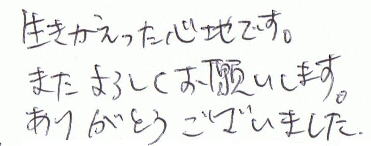 生きかえった心地です。
またよろしくお願いします。
ありがとうございました.